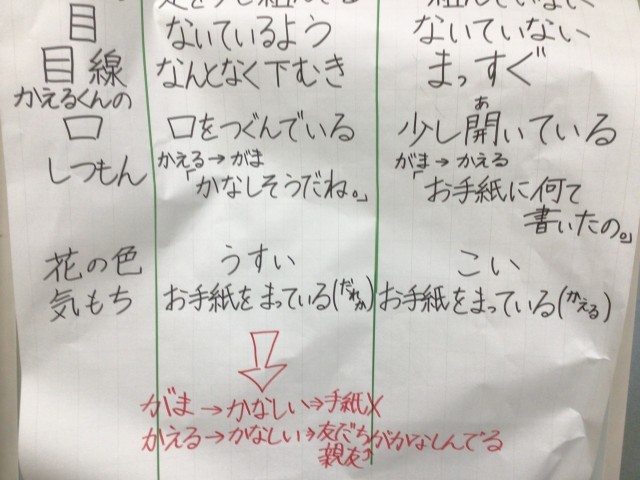 足を少し組んでいる
組んでいない
目
ないているよう
ないていない
目線
なんとなく下むき
まっすぐ
かえるくんの
口
口をつぐんでいる
少し開いている
あ
しつもん
かえる→がま
「かなしそうだね。」
がま→かえる
「お手紙に何て
書いたの。」
花の色
うすい
こい
気もち
お手紙をまっている(だれか)
お手紙をまっている(かえる)
がま→かなしい⇒手紙×
かえる→かなしい⇒友だちがかなしんでる
親友